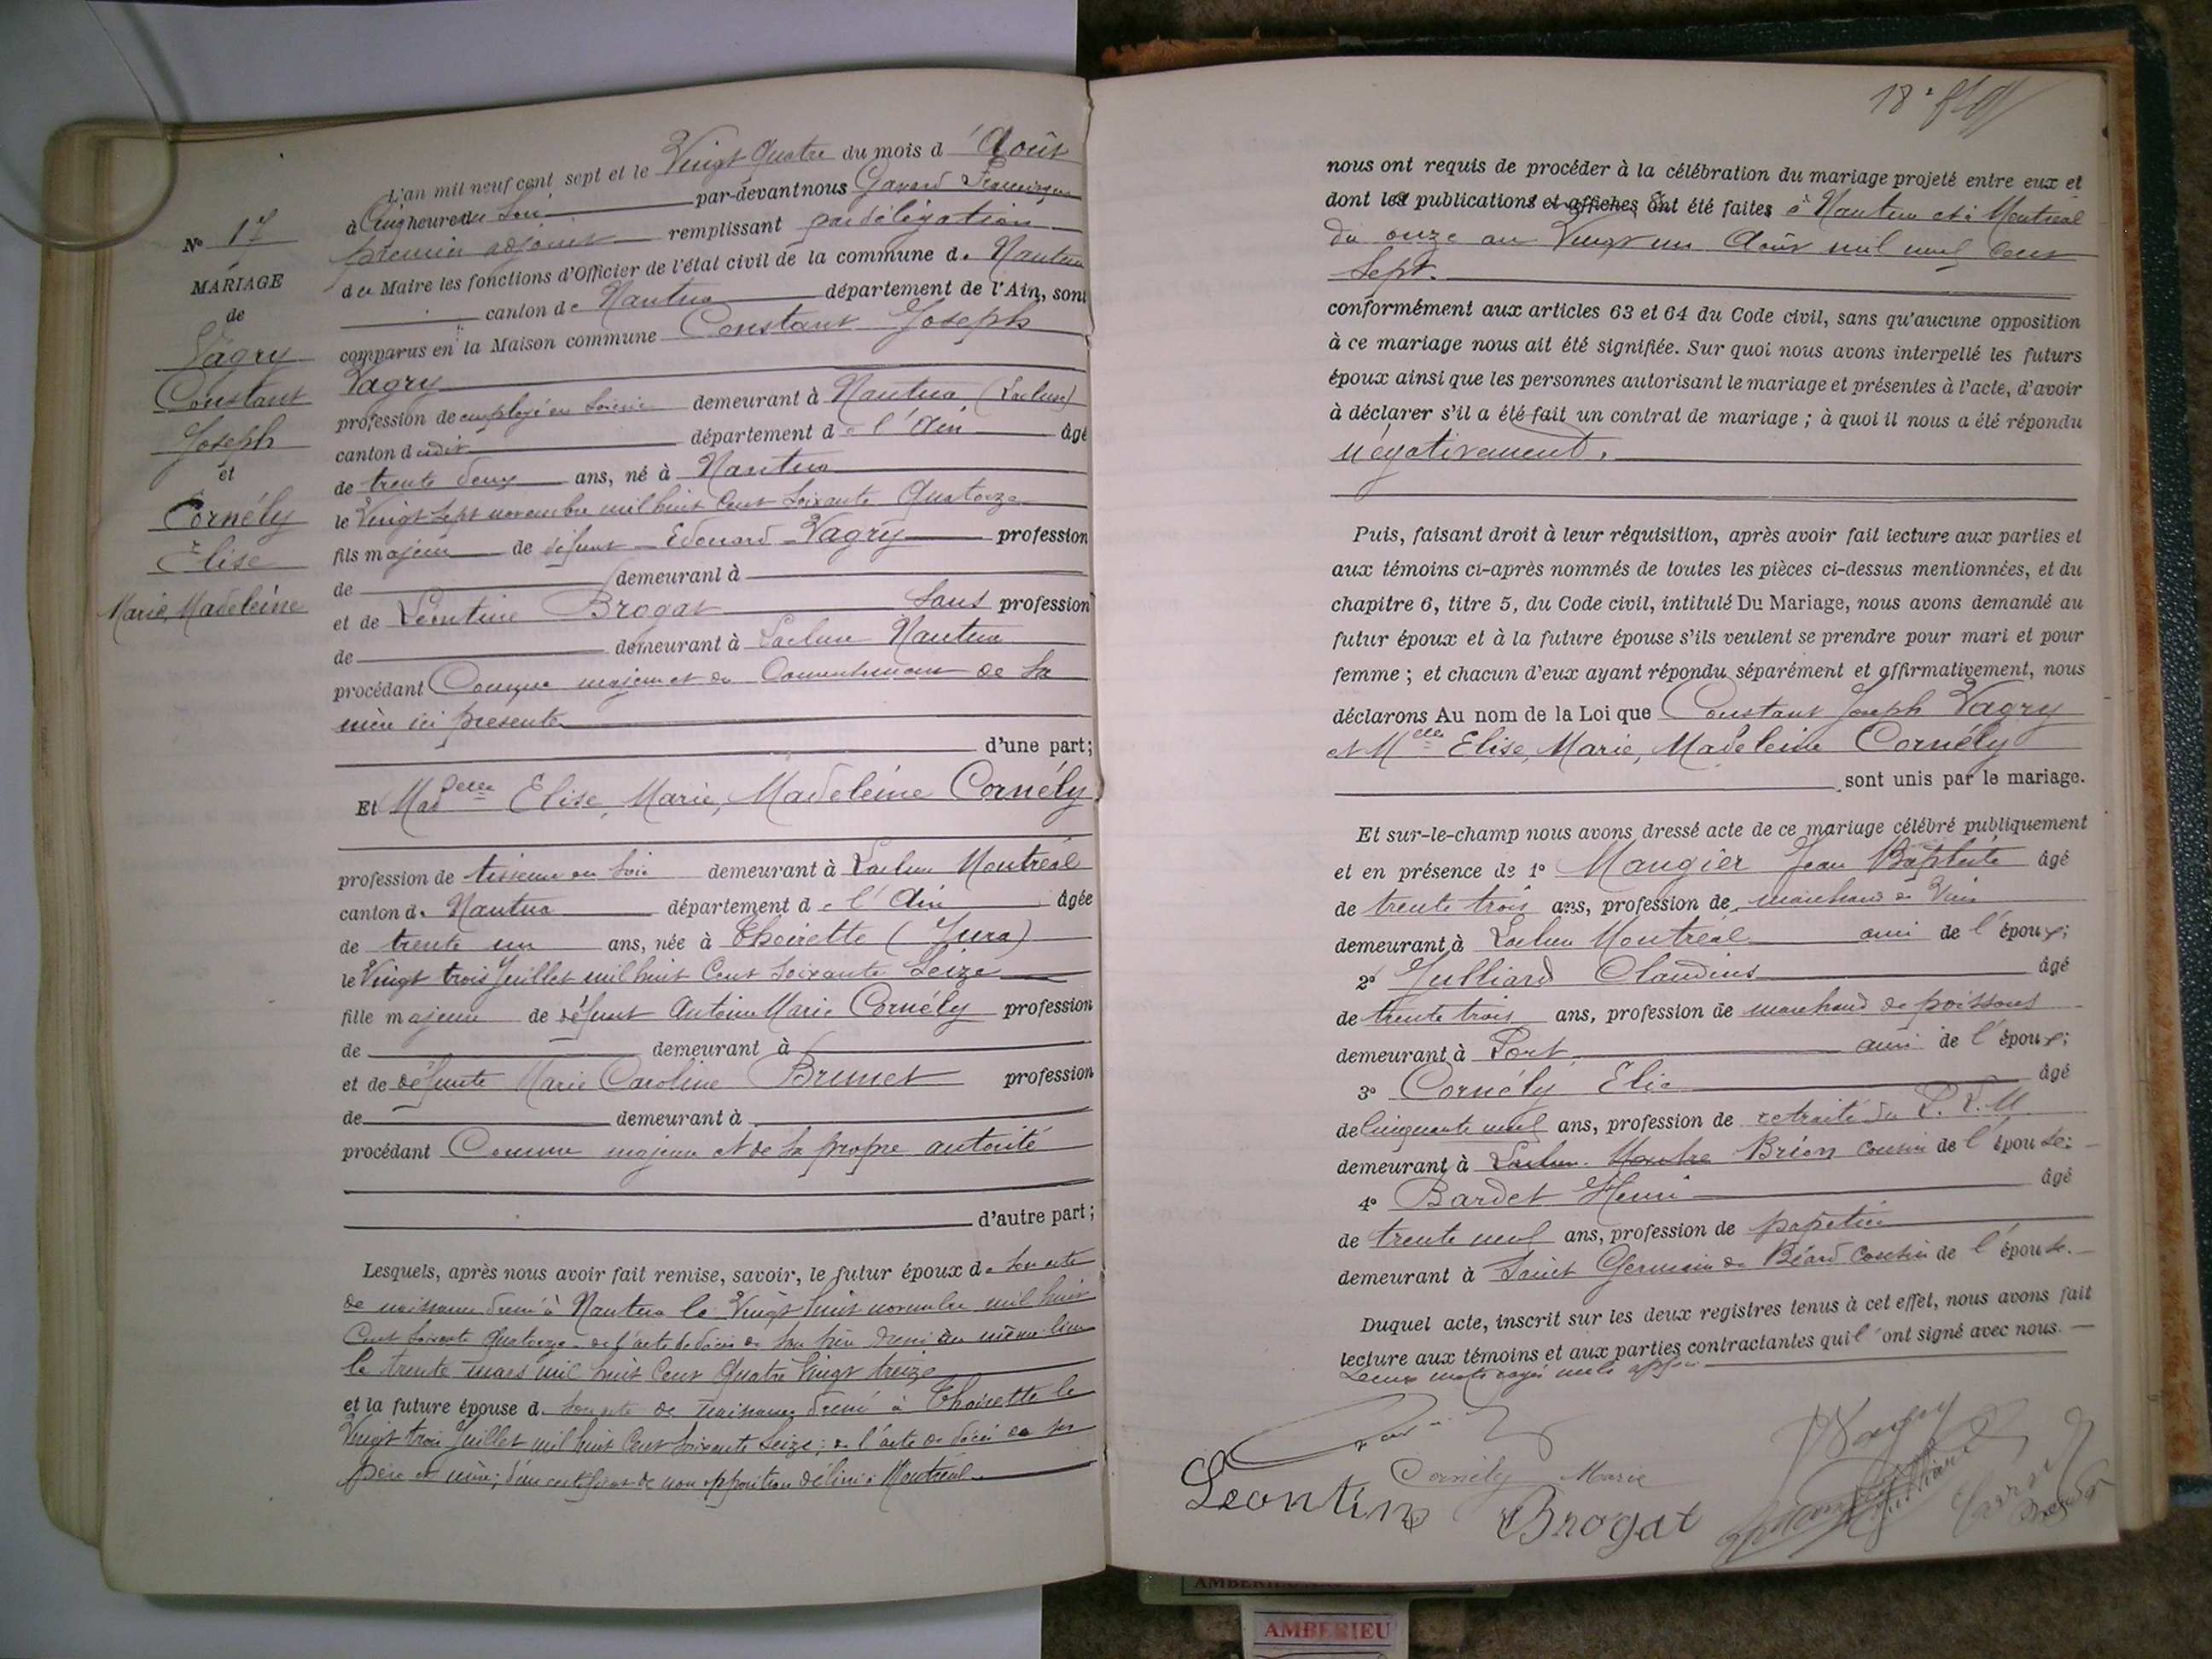 L'an mil neuf cent sept et le Vingt Quatre du mois d'Août
à Cinq heures du Soir par-devant nous Gavard Francisque
premier adjoint remplissant par délégation
du Maire les fonctions d'Officier de l'état civil de la commune de Nantua
canton de Nantua département de l'Ain, sont
comparus en la Maison commune Constant Joseph
Vagry
profession de employé en soierie demeurant à Nantua (Lacluse)
canton dudit département de l'Ain âgé
de trente deux ans, né à Nantua
le Vingt sept novembre mil huit Cent Soixante Quatorze
fils majeur de défunt Edouard Vagry profession
de demeurant à
et de Léontine Brogat Sans profession
de demeurant à Lacluse Nantua
procédant Comme majeur et du Consentement de sa
mère ici présente
d'une part;
Et Madelle Elise, Marie, Madeleine Cornély
profession de tisseuse en soie demeurant à Lacluse Montréal
canton de Nantua département de l'Ain âgée
de trente un ans, née à Thoirette (Jura)
le Vingt trois Juillet mil huit Cent Soixante Seize
fille majeure de défunt Antoine Marie Cornély profession
de demeurant à
et de défunte Marie Caroline Brunet profession
de demeurant à
procédant Comme majeure et de sa propre autorité
d'autre part;
Lesquels, après nous avoir fait remise, savoir, le futur époux de son acte
de naissance dressé à Nantua le Vingt huit novembre mil huit
Cent Soixante Quatorze de l'acte de décès de son père dressé au même lieu
le trente mars mil huit Cent Quatre Vingt treize
et la future épouse de son acte de naissance dressé à Thoirette le
Vingt trois Juillet mil huit Cent Soixante Seize; de l'acte de décès de ses
père et mère; d'un certificat de non opposition délivré à Montréal
No 17
MARIAGE
de
Vagry
Constant
Joseph
et
Cornély
Elise
Marie, Madeleine
18e
nous ont requis de procéder à la célébration du mariage projeté entre eux et
dont les publications et affiches ont été faites à Nantua et à Montréal
du onze au Vingt un Août mil neuf Cent
Sept.
conformément aux articles 63 et 64 du Code civil, sans qu'aucune opposition
à ce mariage nous ait été signifiée. Sur quoi nous avons interpellé les futurs
époux ainsi que les personnes autorisant le mariage et présentes à l'acte, d'avoir
à déclarer s'il a été fait un contrat de mariage; à quoi il nous a été répondu
négativement.
Puis, faisant droit à leur réquisition, après avoir fait lecture aux parties et
aux témoins ci-après nommés de toutes les pièces ci-dessus mentionnées, et du
chapitre 6, titre 5, du Code civil, intitulé Du Mariage, nous avons demandé au
futur époux et à la future épouse s'ils veulent se prendre pour mari et pour
femme; et chacun d'eux ayant répondu séparément et affirmativement, nous
déclarons Au nom de la Loi que Constant Joseph Vagry
et Melle Elise, Marie, Madeleine Cornély
sont unis par le mariage.
Et sur-le-champ nous avons dressé acte de ce mariage célébré publiquement
et en présence de 1o Maugier Jean Baptiste âgé
de trente trois ans, profession de marchand de Vin
demeurant à Lacluse Montréal ami de l'époux;
2o Julliard Claudius âgé
de trente trois ans, profession de marchand de poissons
demeurant à Port ami de l'époux;
3o Cornély Elie âgé
de Cinquante neuf ans, profession de retraité du P. L. M
demeurant à Brion cousin de l'épouse;
4o Bardet Henri âgé
de trente neuf ans, profession de papetier
demeurant à Saint Germain de Béard cousin de l'épouse.
Duquel acte, inscrit sur les deux registres tenus à cet effet, nous avons fait
lecture aux témoins et aux parties contractantes qui l'ont signé avec nous.
Deux mots rayés nuls
Vagry
Cornély Marie
Leontine Brogat
Julliard
AMBERIEU